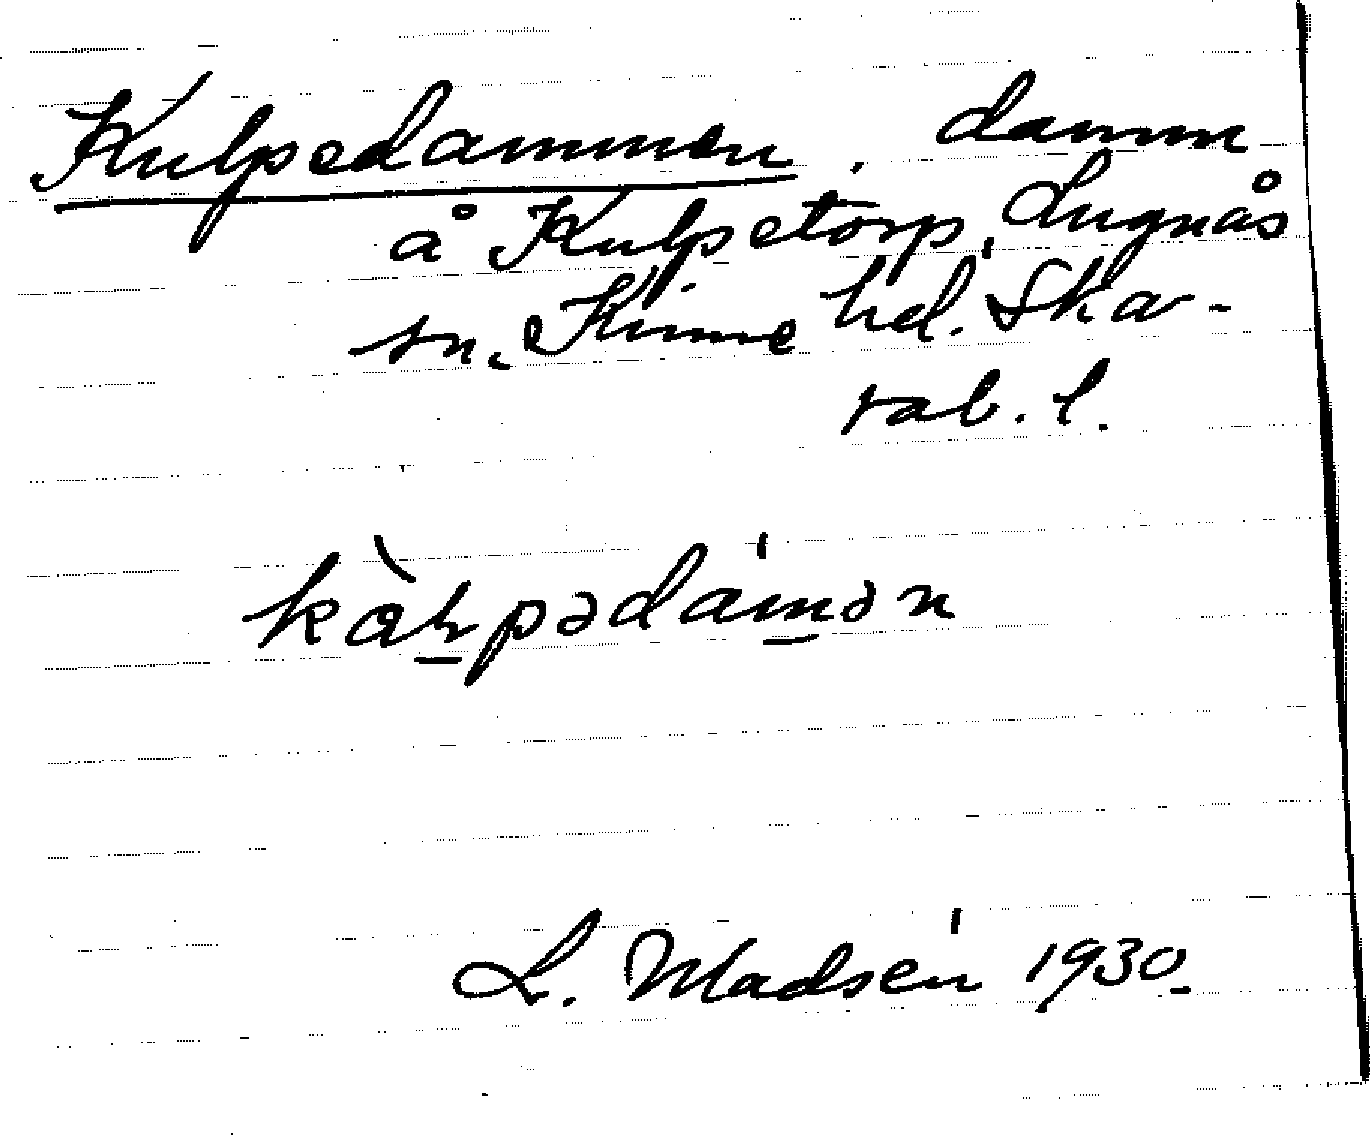 Kulpedammen, damm
å Kulpetorp, Lugnås
sn, Kinne hd. Ska-
rab. l.
kàḻpədám̱ən
L. Madsén 1930.